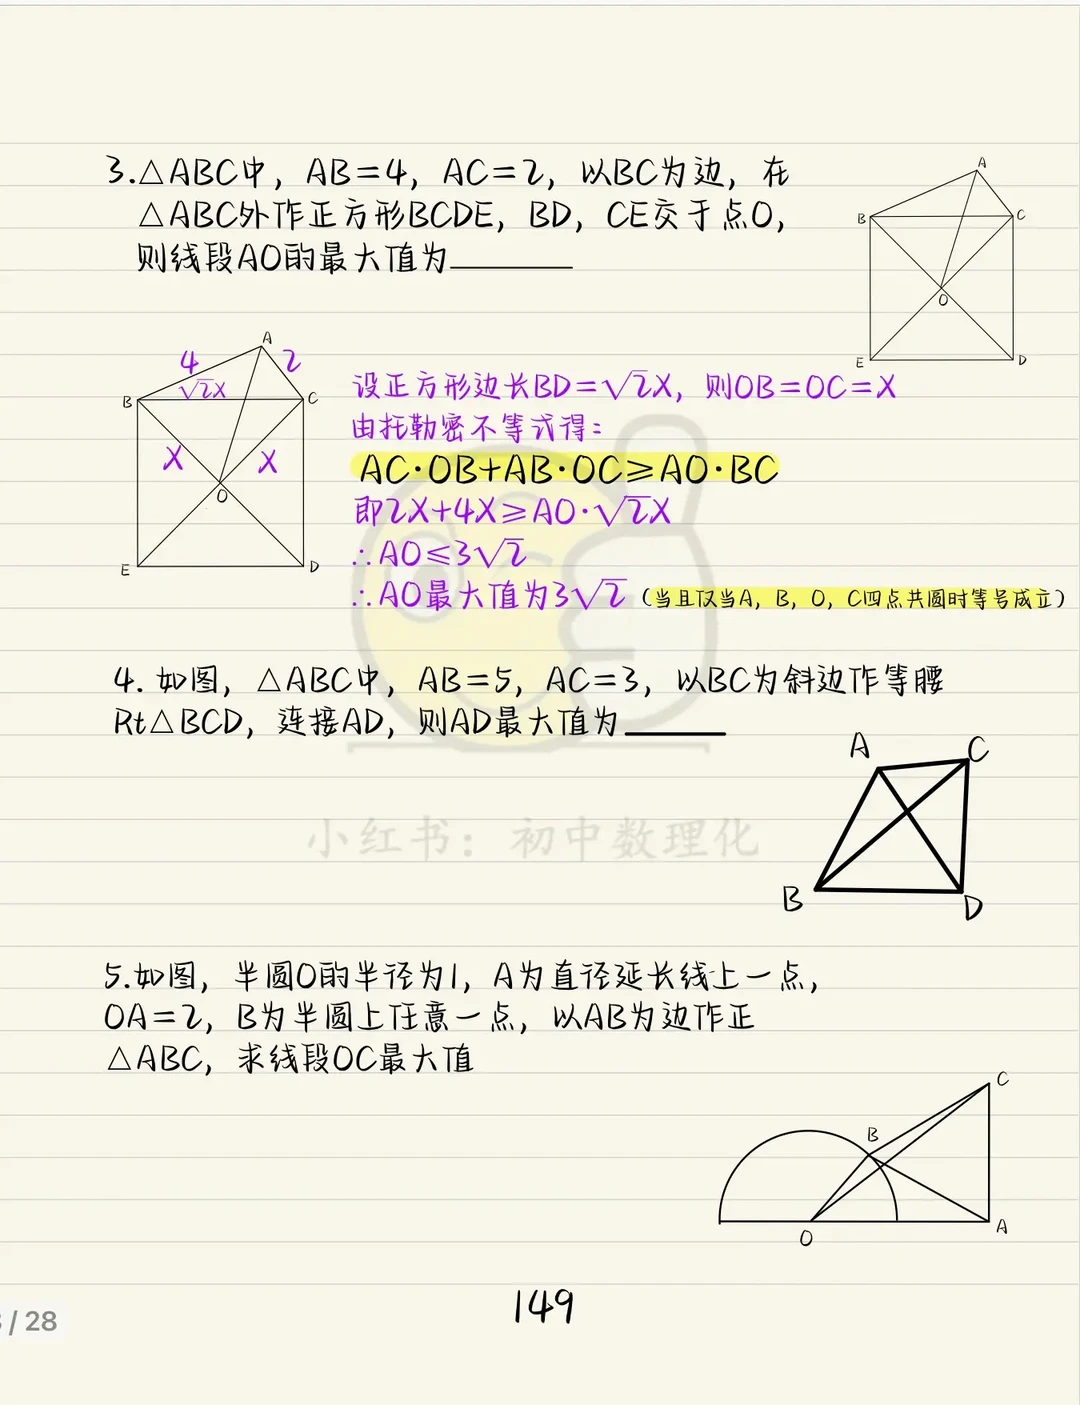 3.△ABC中，AB=4，AC=2，以BC为边，在
△ABC外作正方形BCDE，BD，CE交于点O，
则线段AO的最大值为______
A
B
C
O
E
D
A
4
2
√2X
B
C
X
X
O
E
D
设正方形边长BD=√2X，则OB=OC=X
由托勒密不等式得：
AC·OB+AB·OC≥AO·BC
即2X+4X≥AO·√2X
∴AO≤3√2
∴AO最大值为3√2（当且仅当A，B，O，C四点共圆时等号成立）
4. 如图，△ABC中，AB=5，AC=3，以BC为斜边作等腰
Rt△BCD，连接AD，则AD最大值为______
A
C
B
D
小红书：初中数理化
5.如图，半圆O的半径为1，A为直径延长线上一点，
OA=2，B为半圆上任意一点，以AB为边作正
△ABC，求线段OC最大值
C
B
O
A
149
/ 28